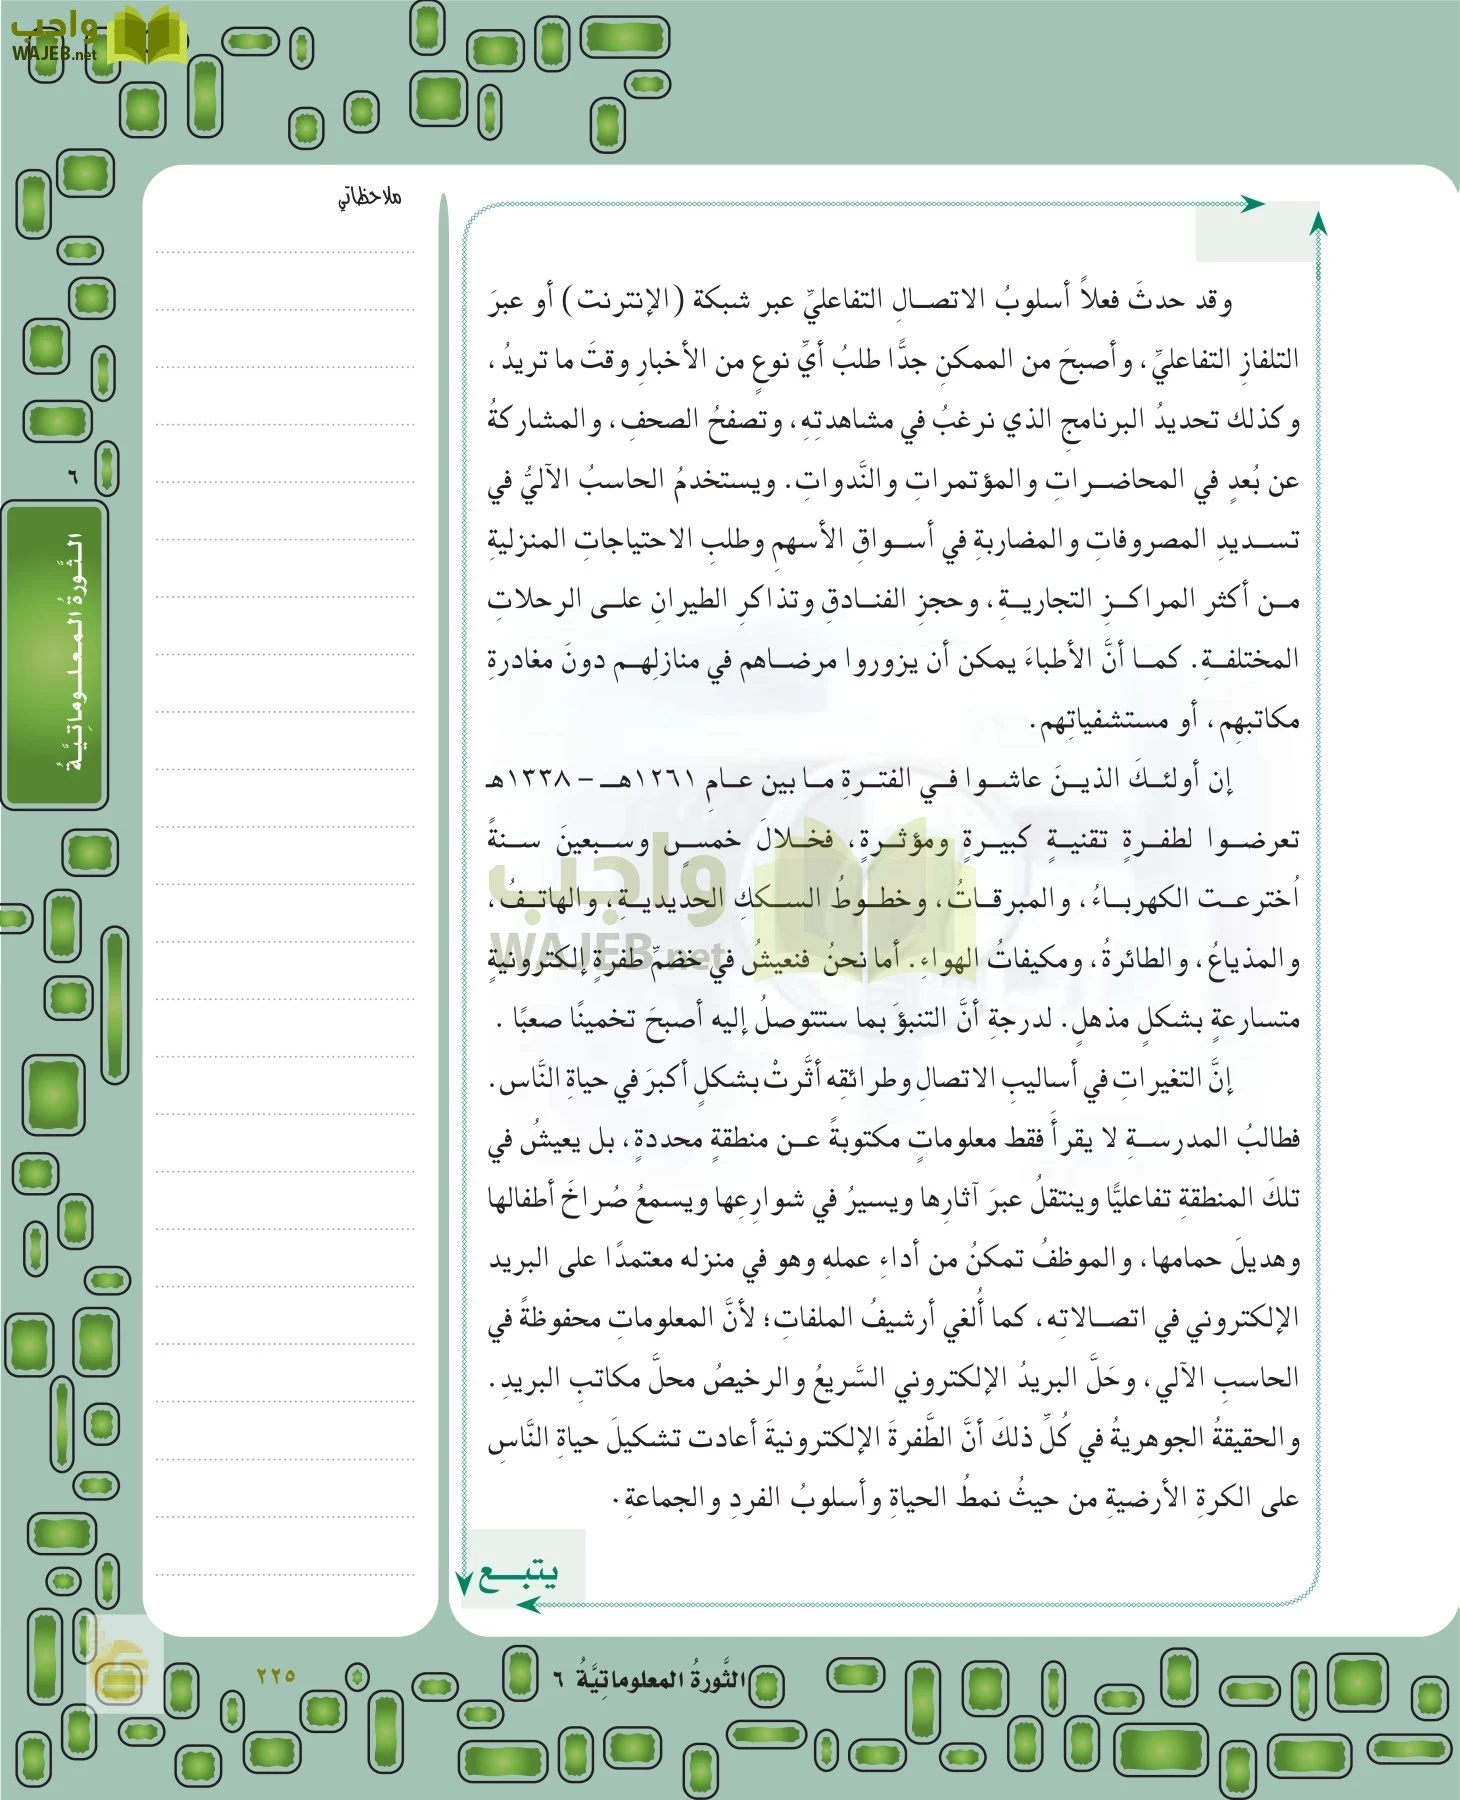 واجب
WAJEB.net
ملاحظاتي
وقد حدثَ فعلاً أسلوبُ الاتصالِ التفاعليِّ عبر شبكة (الإنترنت) أو عبرَ
التلفازِ التفاعليِّ، وأصبحَ من الممكنِ جدًّا طلبُ أيِّ نوعٍ من الأخبارِ وقتَ ما تريدُ،
وكذلك تحديدُ البرنامجِ الذي نرغبُ في مشاهدتِهِ، وتصفحُ الصحفِ، والمشاركةُ
عن بُعدٍ في المحاضراتِ والمؤتمراتِ والنَّدواتِ. ويستخدمُ الحاسبُ الآليُّ في
تسديدِ المصروفاتِ والمضاربةِ في أسواقِ الأسهمِ وطلبِ الاحتياجاتِ المنزليةِ
من أكثر المراكزِ التجاريةِ، وحجزِ الفنادقِ وتذاكرِ الطيرانِ على الرحلاتِ
المختلفةِ. كما أنَّ الأطباءَ يمكن أن يزوروا مرضاهم في منازلِهم دونَ مغادرةِ
مكاتبهِم، أو مستشفياتِهم.
إن أولئكَ الذينَ عاشوا في الفترةِ ما بين عامِ ١٢٦١هـ – ١٣٣٨هـ
تعرضوا لطفرةٍ تقنيةٍ كبيرةٍ ومؤثرةٍ، فخلالَ خمسٍ وسبعينَ سنةً
اُخترعت الكهرباءُ، والمبرقاتُ، وخطوطُ السككِ الحديديةِ، والهاتفُ،
والمذياعُ، والطائرةُ، ومكيفاتُ الهواءِ. أما نحنُ فنعيشُ في خضمِّ طفرةٍ إلكترونيةٍ
متسارعةٍ بشكلٍ مذهلٍ. لدرجةِ أنَّ التنبؤَ بما ستتوصلُ إليه أصبحَ تخمينًا صعبًا .
إنَّ التغيراتِ في أساليبِ الاتصالِ وطرائقِه أثَّرتْ بشكلٍ أكبرَ في حياةِ النَّاس.
فطالبُ المدرسةِ لا يقرأَ فقط معلوماتٍ مكتوبةً عن منطقةٍ محددةٍ، بل يعيشُ في
تلكَ المنطقةِ تفاعليًّا وينتقلُ عبرَ آثارِها ويسيرُ في شوارعِها ويسمعُ صُراخَ أطفالها
وهديلَ حمامها، والموظفُ تمكنُ من أداءِ عملهِ وهو في منزله معتمدًا على البريد
الإلكتروني في اتصالاتِه، كما أُلغي أرشيفُ الملفاتِ؛ لأنَّ المعلوماتِ محفوظةً في
الحاسبِ الآلي، وحَلَّ البريدُ الإلكتروني السَّريعُ والرخيصُ محلَّ مكاتبِ البريدِ.
والحقيقةُ الجوهريةُ في كُلِّ ذلكَ أنَّ الطَّفرةَ الإلكترونيةَ أعادت تشكيلَ حياةِ النَّاسِ
على الكرةِ الأرضيةِ من حيثُ نمطُ الحياةِ وأسلوبُ الفردِ والجماعةِ.
يتبع
٦
الثَّورةُ المعلوماتِيَّةُ
واجب
WAJEB.net
الثَّورةُ المعلوماتِيَّةُ ٦
٢٢٥